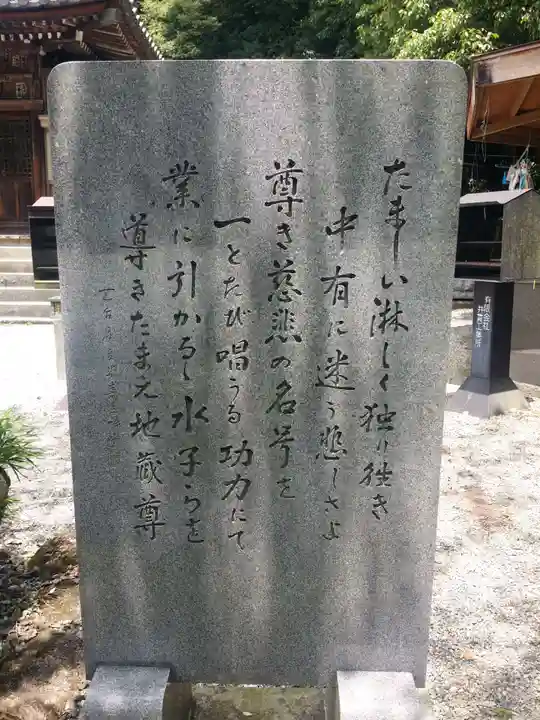 たましい淋しく独り往き
中有に迷う悲しさよ
尊き慈悲の名号を
一とたび唱うる功力にて
業に引かるゝ水子らを
導きたまえ地蔵尊
有限会社